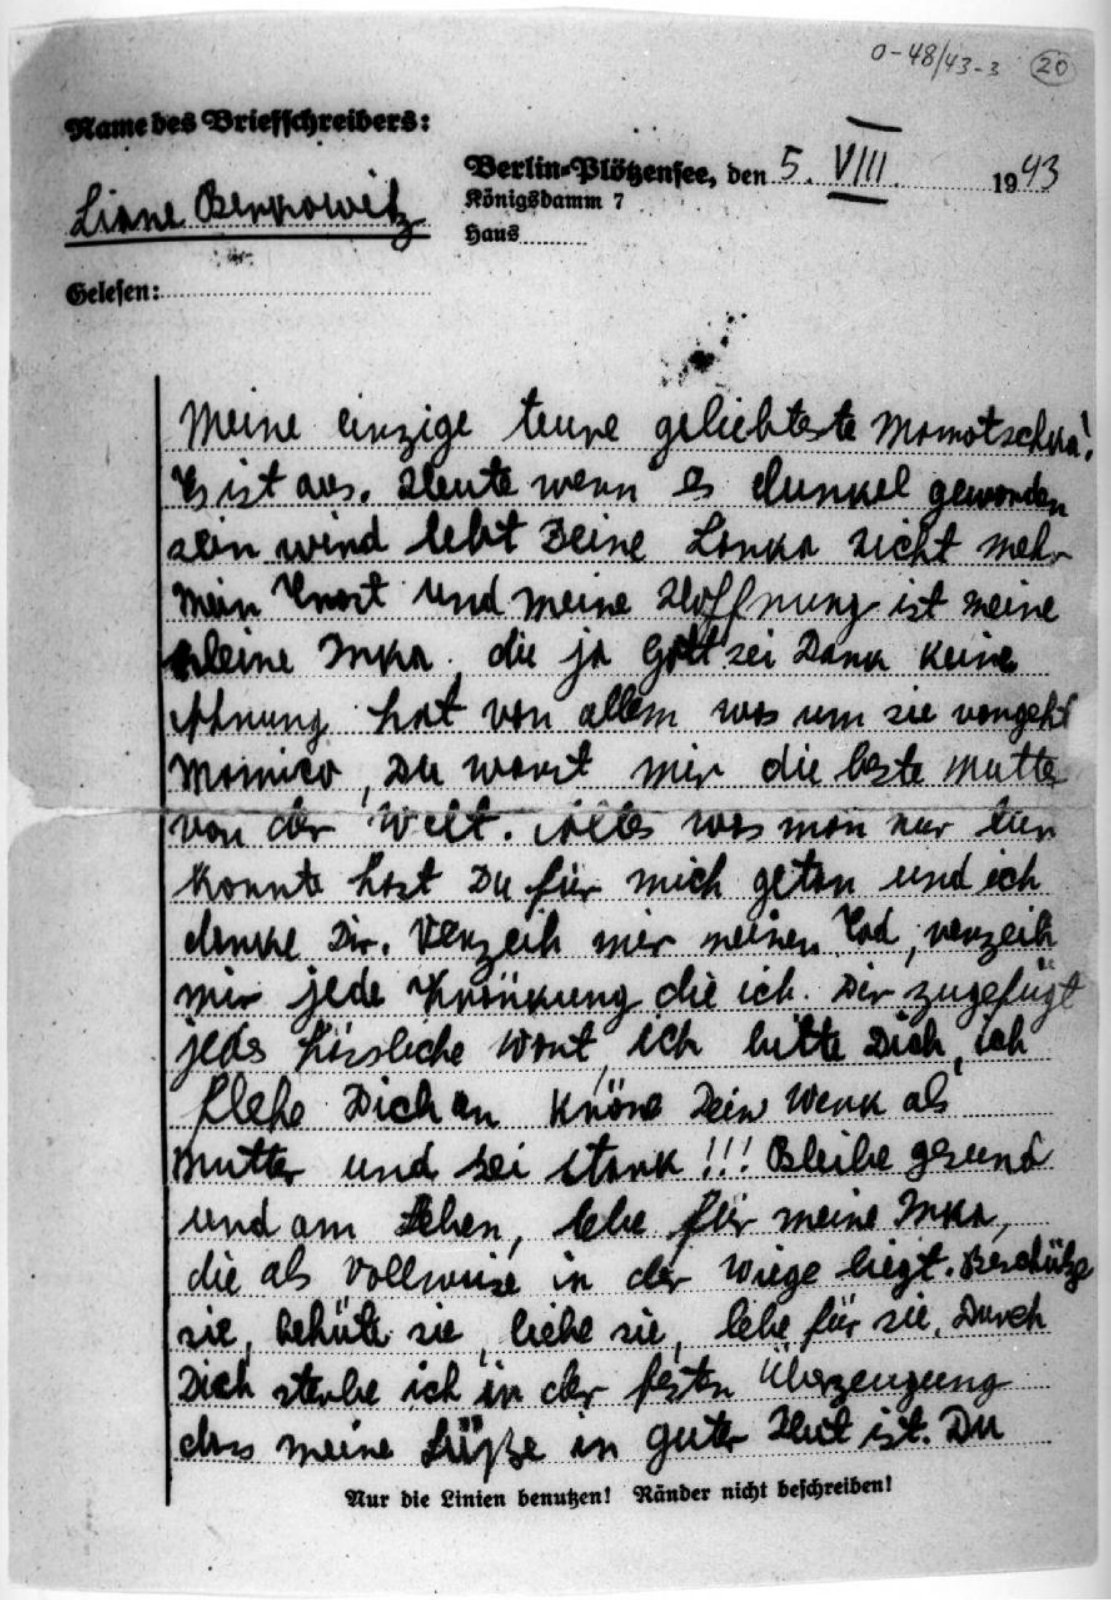 0-48/43-3 20
Name des Briefschreibers:
Berlin-Plötzensee, den 5. VIII. 1943
Liane Berkowitz
Königsdamm 7
Haus
Gelesen:
Meine einzige teure geliebteste Mamotschka!
Es ist aus. Heute wenn es dunkel geworden
sein wird lebt Deine Lanka nicht mehr
Mein Trost und meine Hoffnung ist meine
kleine Irka, die ja Gott sei Dank keine
Ahnung hat von allem was um sie vorgeht
Du warst mir die beste Mutter
von der Welt. Alles was man nur tun
konnte hast Du für mich getan und ich
danke Dir. Verzeih mir meinen Tod, verzeih
mir jede Kränkung die ich Dir zugefügt
jedes hässliche Wort, ich bitte Dich, ich
flehe Dich an kröne Dein Werk als
Mutter und sei stark!!! Bleibe gesund
und am Leben, lebe für meine Irka,
die als Vollwaise in der Wiege liegt. Beschütze
sie, behüte sie, liebe sie, lebe für sie. Durch
Dich sterbe ich in der festen Überzeugung
dass meine Süße in guter Hut ist. Du
Nur die Linien benutzen! Ränder nicht beschreiben!